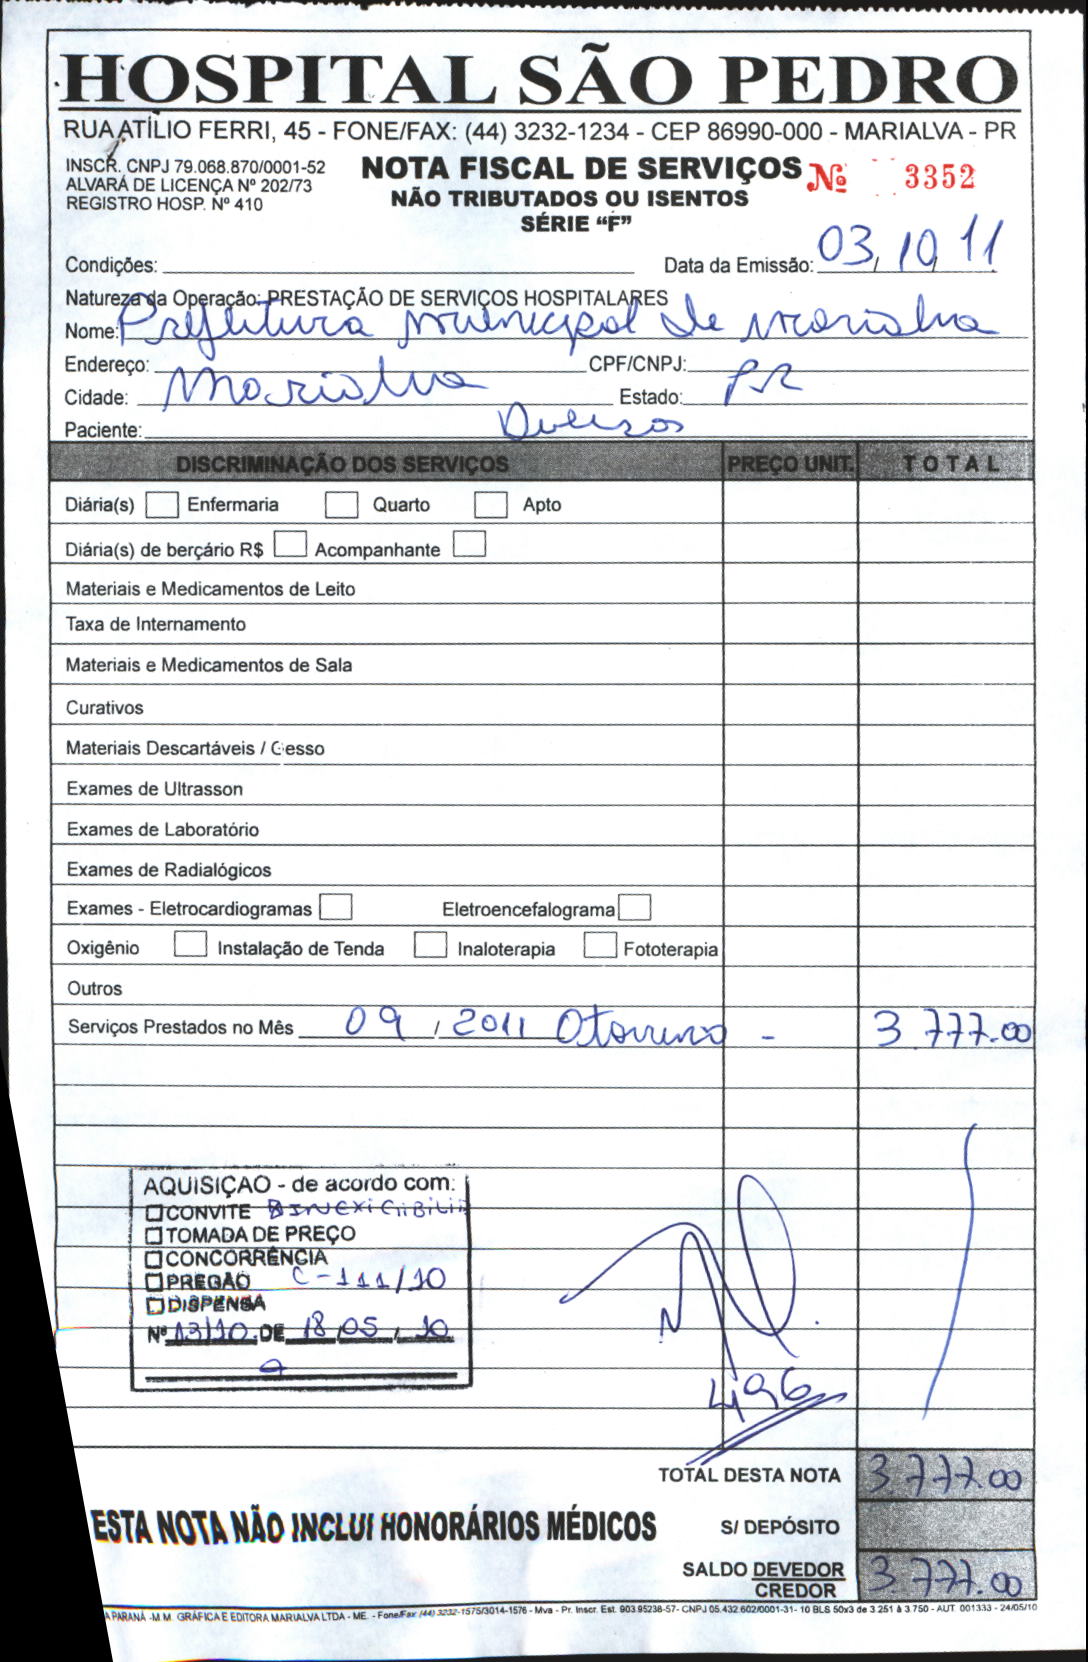 HOSPITAL SÃO PEDRO
RUA ATÍLIO FERRI, 45 - FONE/FAX: (44) 3232-1234 - CEP 86990-000 - MARIALVA - PR
INSCR. CNPJ 79.068.870/0001-52
ALVARÁ DE LICENÇA Nº 202/73
REGISTRO HOSP. Nº 410
NOTA FISCAL DE SERVIÇOS
NÃO TRIBUTADOS OU ISENTOS
SÉRIE “F”
Nº 3352
Condições: Data da Emissão: 03, 10, 11
Natureza da Operação: PRESTAÇÃO DE SERVIÇOS HOSPITALARES
Nome: Prefeitura Municipal de Marialva
Endereço: CPF/CNPJ:
Cidade: Marialva Estado: PR
Paciente: Diversos
DISCRIMINAÇÃO DOS SERVIÇOS PREÇO UNIT. TOTAL
Diária(s) Enfermaria Quarto Apto
Diária(s) de berçário R$ Acompanhante
Materiais e Medicamentos de Leito
Taxa de Internamento
Materiais e Medicamentos de Sala
Curativos
Materiais Descartáveis / Gesso
Exames de Ultrasson
Exames de Laboratório
Exames de Radialógicos
Exames - Eletrocardiogramas Eletroencefalograma
Oxigênio Instalação de Tenda Inaloterapia Fototerapia
Outros
Serviços Prestados no Mês 09 / 2011 Otorrino - 3.777.00
AQUISIÇÃO - de acordo com:
CONVITE
TOMADA DE PREÇO
CONCORRÊNCIA
PREGÃO C-111/10
DISPENSA
Nº 13/10. DE 18/05/10
496
TOTAL DESTA NOTA 3.777.00
ESTA NOTA NÃO INCLUI HONORÁRIOS MÉDICOS
S/ DEPÓSITO
SALDO DEVEDOR
CREDOR 3.777.00
A PARANÁ - M.M. GRÁFICA E EDITORA MARIALVA LTDA - ME. - Fone/Fax (44) 3232-1575/3014-1576 - Mva - Pr. Inscr. Est. 903.95238-57- CNPJ 05.432.602/0001-31- 10 BLS 50x3 de 3.251 à 3.750 - AUT. 001333 - 24/05/10